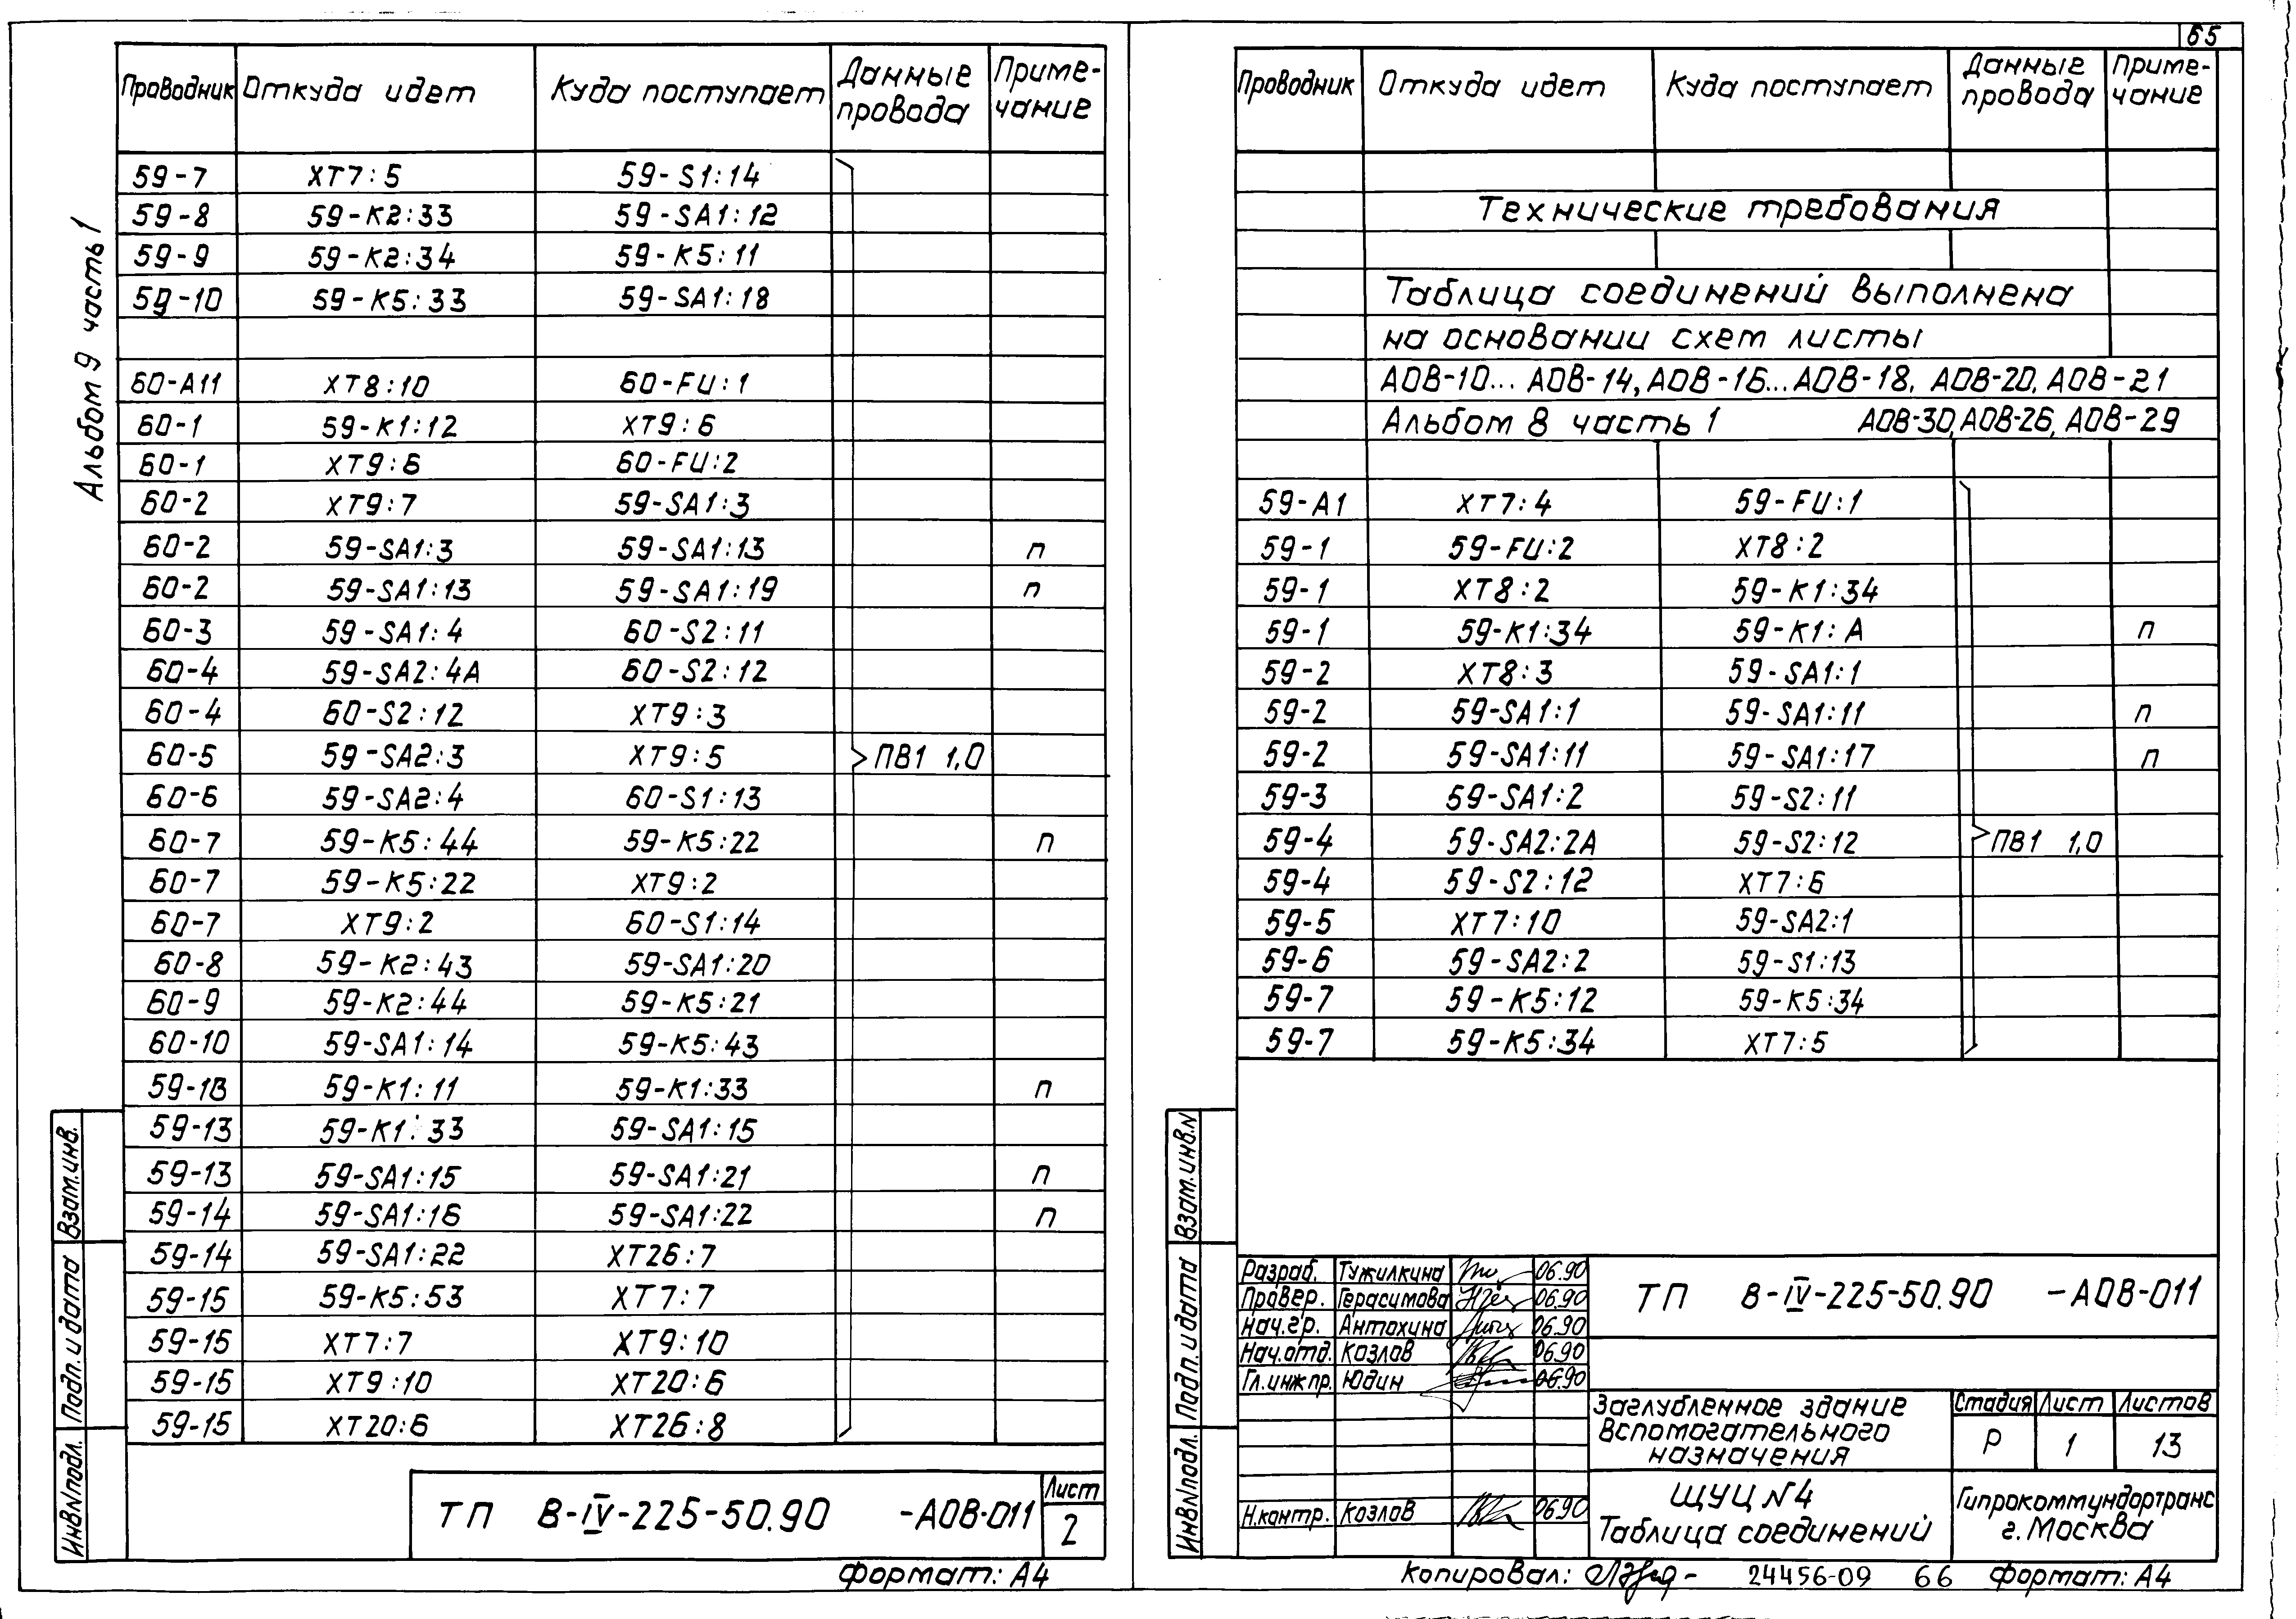 65
Альбом 9 часть 1
Проводник Откуда идет Куда поступает Данные провода Приме-чание
59-7 XT7:5 59-S1:14
59-8 59-K2:33 59-SA1:12
59-9 59-K2:34 59-K5:11
59-10 59-K5:33 59-SA1:18
60-A11 XT8:10 60-FU:1
60-1 59-K1:12 XT9:6
60-1 XT9:6 60-FU:2
60-2 XT9:7 59-SA1:3
60-2 59-SA1:3 59-SA1:13 п
60-2 59-SA1:13 59-SA1:19 п
60-3 59-SA1:4 60-S2:11
60-4 59-SA2:4A 60-S2:12
60-4 60-S2:12 XT9:3
60-5 59-SA2:3 XT9:5 ПВ1 1,0
60-6 59-SA2:4 60-S1:13
60-7 59-K5:44 59-K5:22 п
60-7 59-K5:22 XT9:2
60-7 XT9:2 60-S1:14
60-8 59-K2:43 59-SA1:20
60-9 59-K2:44 59-K5:21
60-10 59-SA1:14 59-K5:43
59-1В 59-K1:11 59-K1:33 п
59-13 59-K1:33 59-SA1:15
59-13 59-SA1:15 59-SA1:21 п
59-14 59-SA1:16 59-SA1:22 п
59-14 59-SA1:22 XT26:7
59-15 59-K5:53 XT7:7
59-15 XT7:7 XT9:10
59-15 XT9:10 XT20:6
59-15 XT20:6 XT26:8
Взам.инв.
Подп.и дата
Инв.N подл.
ТП В-IV-225-50.90 -АОВ-011
Лист
2
Формат: А4
Проводник Откуда идет Куда поступает Данные провода Приме-чание
Технические требования
Таблица соединений выполнена
на основании схем листы
АОВ-10... АОВ-14, АОВ-16...АОВ-18, АОВ-20, АОВ-21
Альбом 8 часть 1 АОВ-30, АОВ-26, АОВ-29
59-A1 XT7:4 59-FU:1
59-1 59-FU:2 XT8:2
59-1 XT8:2 59-K1:34
59-1 59-K1:34 59-K1:A п
59-2 XT8:3 59-SA1:1
59-2 59-SA1:1 59-SA1:11 п
59-2 59-SA1:11 59-SA1:17 п
59-3 59-SA1:2 59-S2:11
59-4 59-SA2:2A 59-S2:12 ПВ1 1,0
59-4 59-S2:12 XT7:6
59-5 XT7:10 59-SA2:1
59-6 59-SA2:2 59-S1:13
59-7 59-K5:12 59-K5:34
59-7 59-K5:34 XT7:5
Взам.инв.N
Подп.и дата
Инв.N подл.
Разраб. Тужилкина 06.90
Провер. Герасимова 06.90
Нач.гр. Антохина 06.90
Нач.отд. Козлов 06.90
Гл.инж.пр. Юдин 06.90
Н.контр. Козлов 06.90
ТП В-IV-225-50.90 -АОВ-011
Заглубленное здание
Вспомогательного
назначения
Стадия Лист Листов
Р 1 13
ЩУЦ N4
Таблица соединений
Гипрокоммундортранс
г.Москва
Копировал: 24456-09 66 Формат: А4